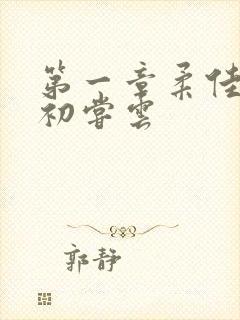 第一章柔佳
初尝云
郭静